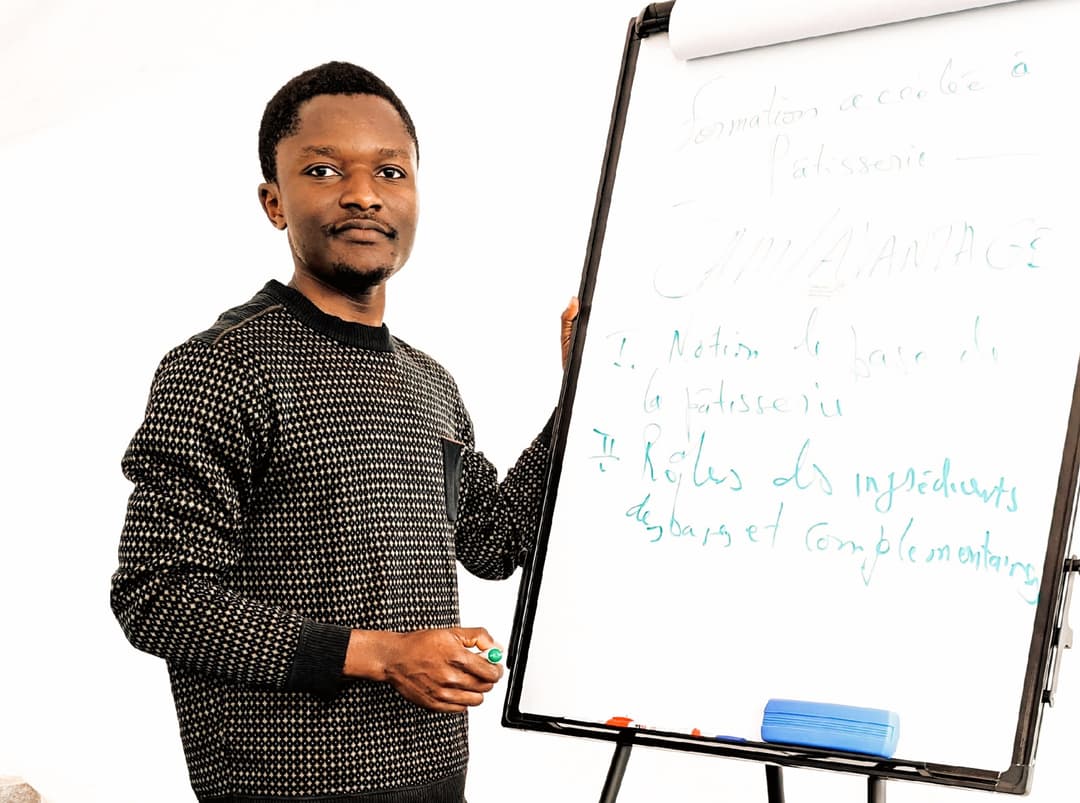 Formation accélée à
Pâtisserie
AVANTAGE
I. Notion de base de
la pâtisserie
II. Rôles des ingrédients
des bases et complémentaires